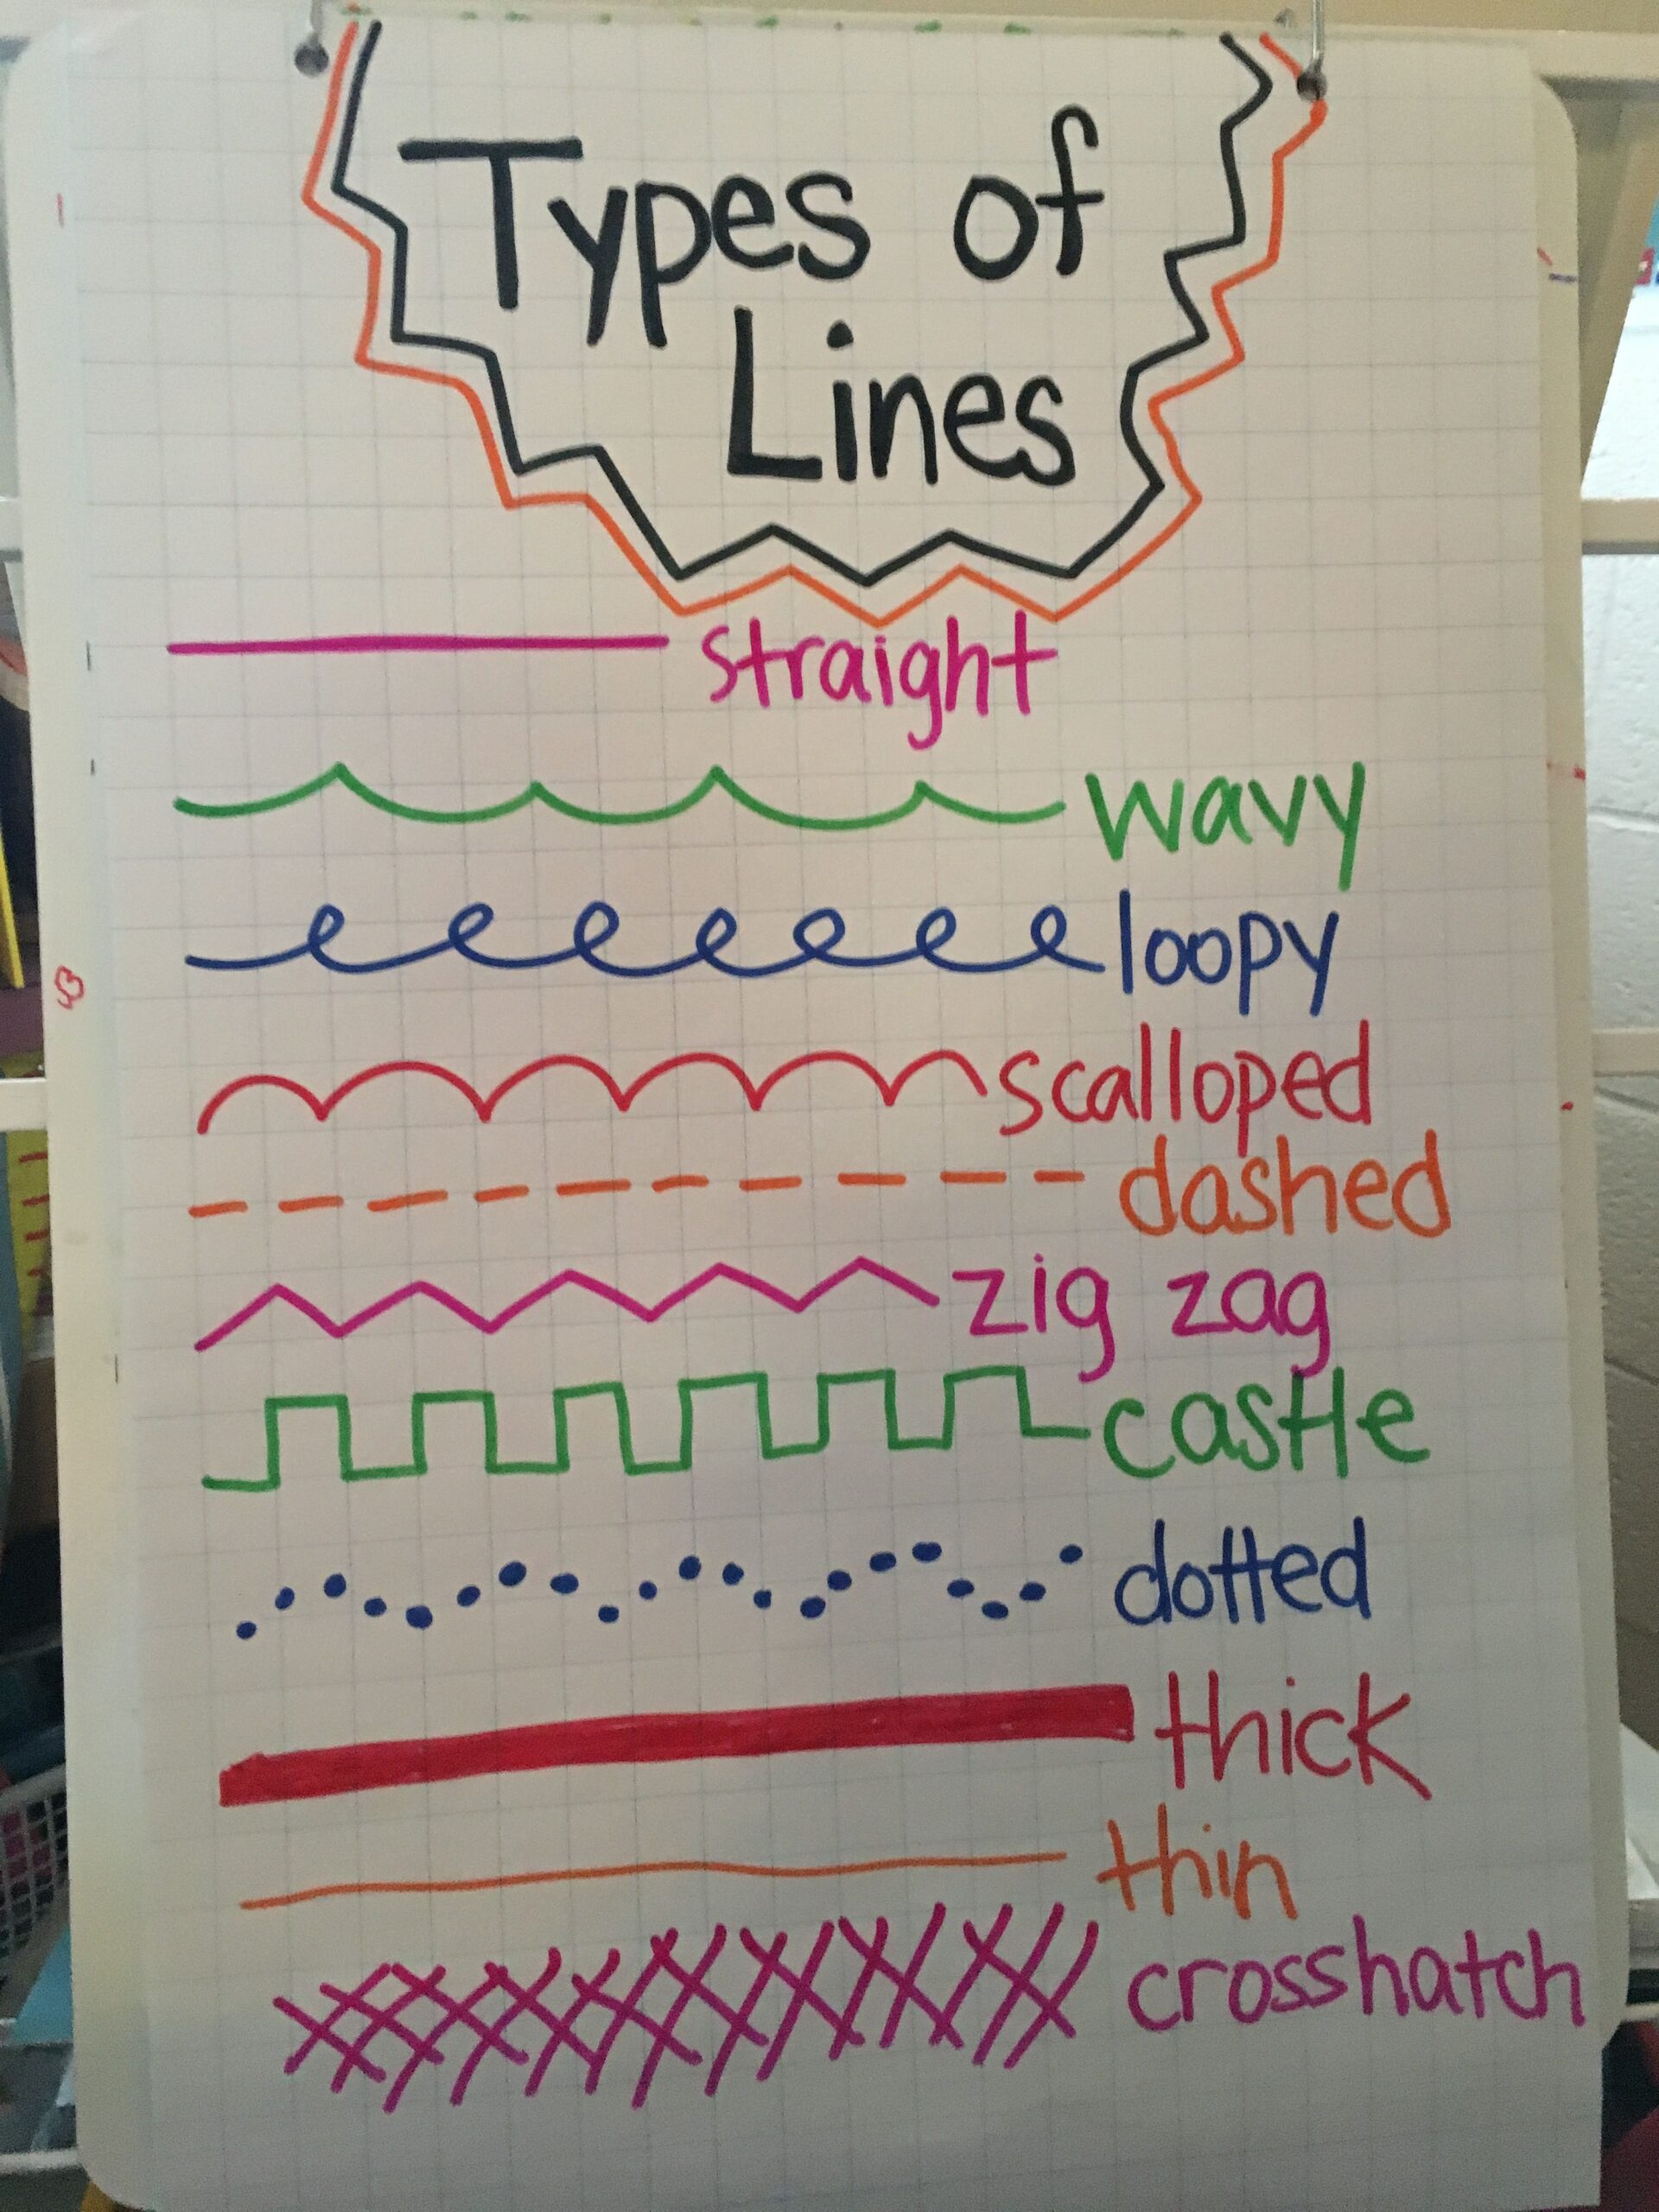 Types of
Lines
straight
wavy
loopy
scalloped
dashed
zig zag
castle
dotted
thick
thin
crosshatch